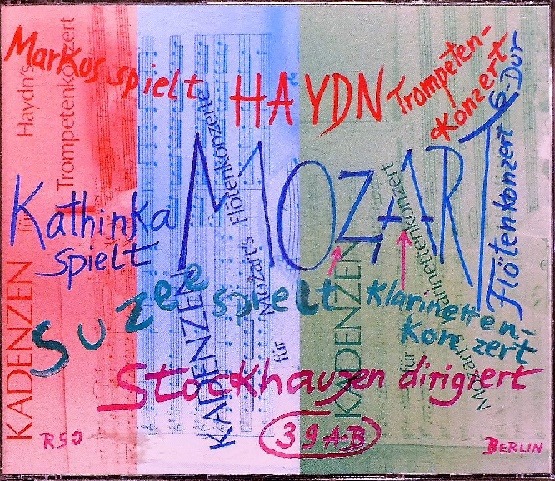 Markus spielt HAYDN Trompeten-
Konzert
Kathinka
spielt
MOZART
Flötenkonzert G-Dur
Suzee spielt Klarinetten-
Konzert
Stockhausen dirigiert
RSO
39 A-B
BERLIN
KADENZEN für
Haydn's
Trompetenkonzert
KADENZEN
für
Mozart's Flötenkonzerte
KADENZEN
für
Mozarts Klarinettenkonzert